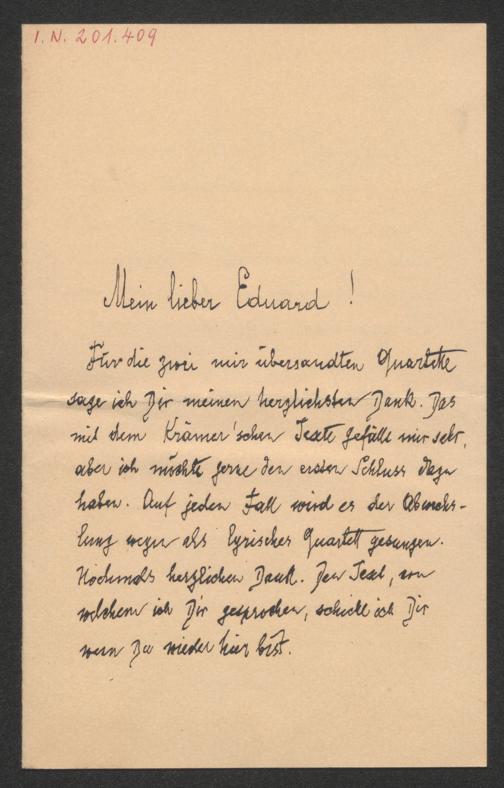 I. N. 201.409
Mein lieber Eduard !
Für die zwei mir übersandten Quartette
sage ich Dir meinen herzlichsten Dank. Das
mit dem Krämer'schen Texte gefällt mir sehr,
aber ich möchte gerne den ersten Schluss dazu
haben. Auf jeden Fall wird es der Abwechs-
lung wegen als lyrisches Quartett gesungen.
Nochmals herzlichen Dank. Den Text, von
welchem ich Dir gesprochen, schicke ich Dir
wenn Du wieder hier bist.